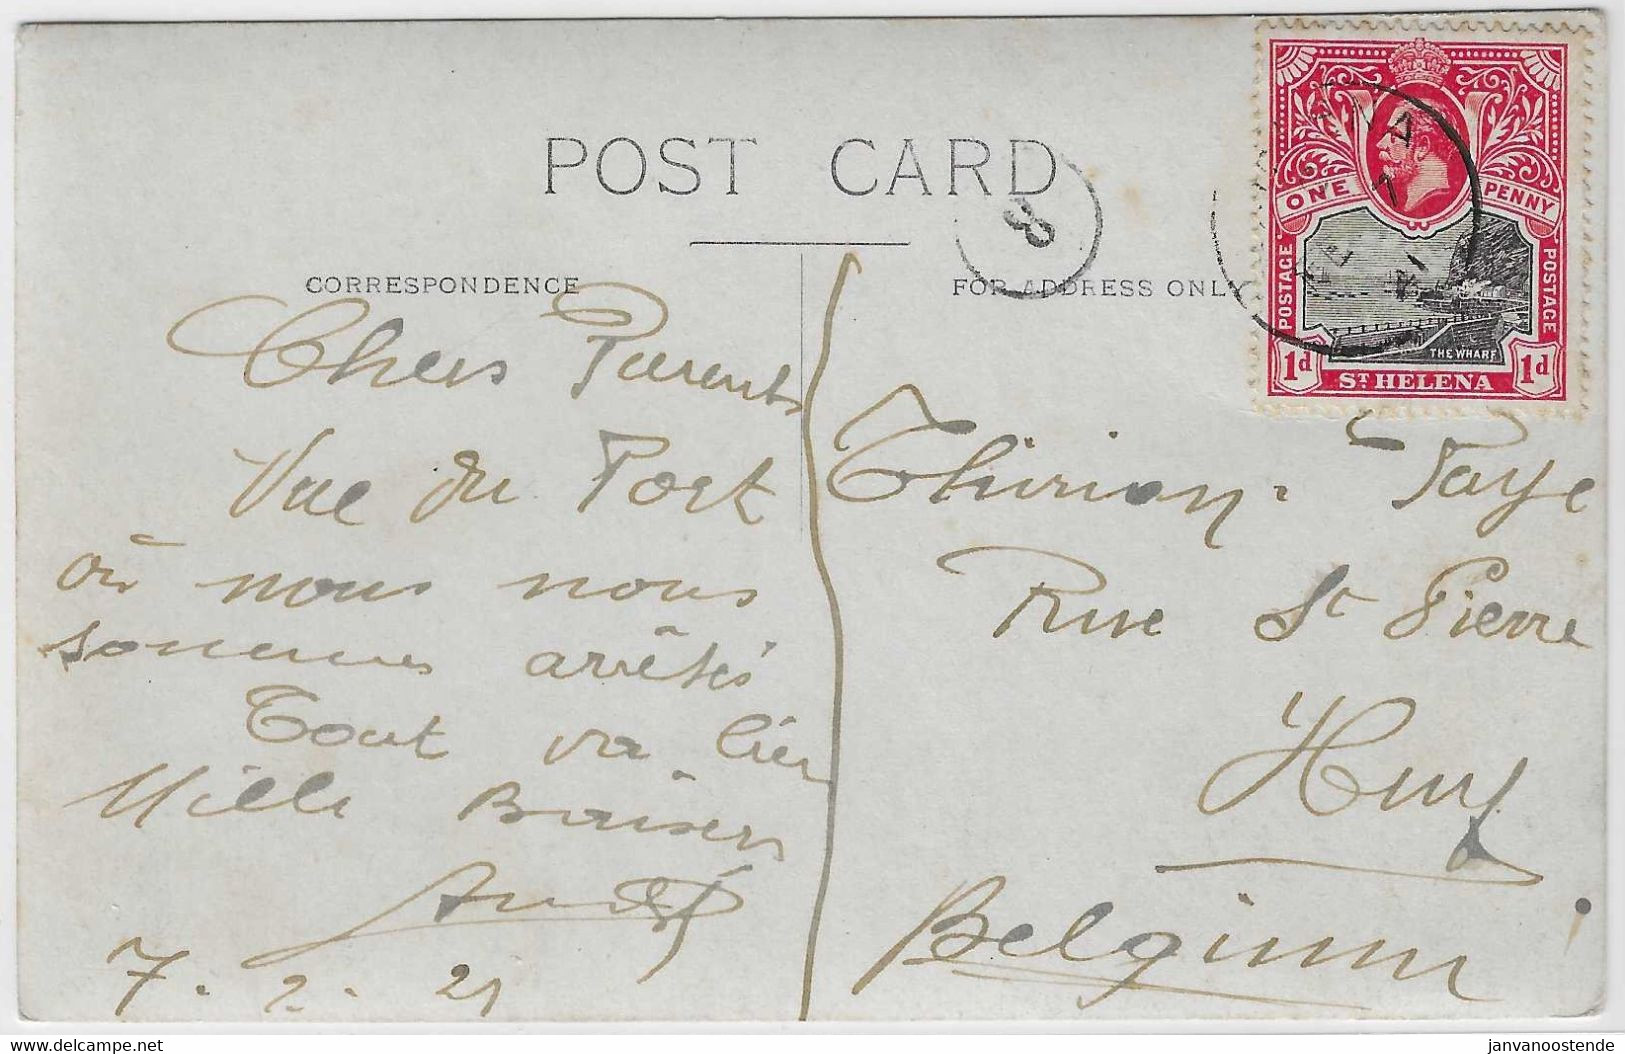 POST CARD
8
CORRESPONDENCE
FOR ADDRESS ONLY
Chers Parents
Vue du Port
où nous nous
sommes arrêtés
Tout va bien
Mille Baisers
André
7. 2. 21
ONE PENNY
POSTAGE
POSTAGE
THE WHARF
1d ST HELENA 1d
ENA
7
FE
21
Thirion-Paye
Rue St Pierre
Huy
Belgium
delcampe.net
janvanoostende